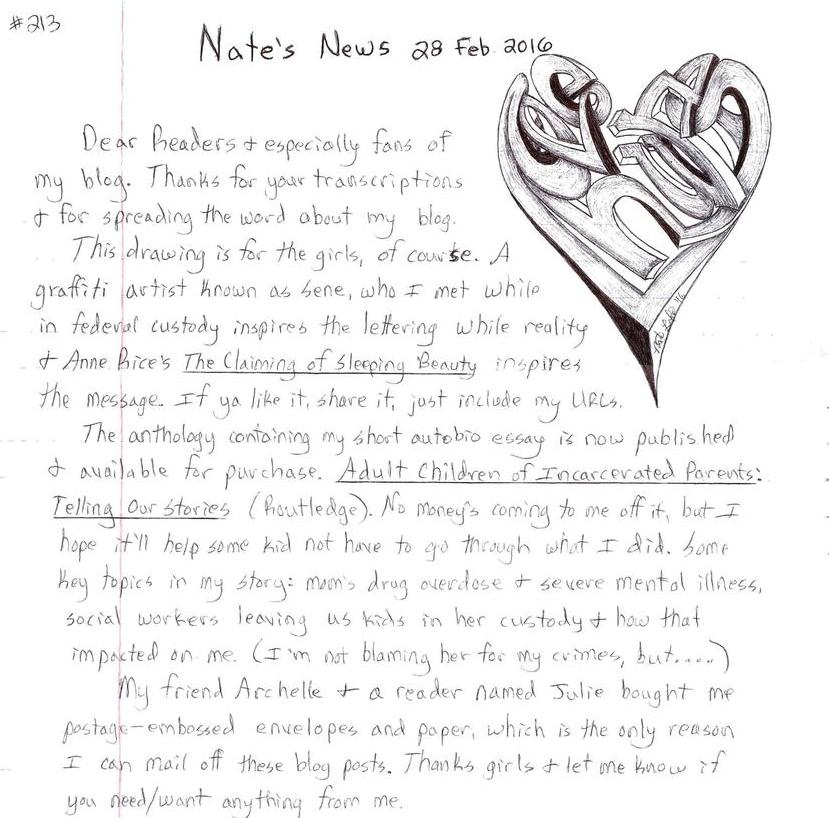 #213
Nate's News 28 Feb. 2016
Dear Readers + especially fans of
my blog. Thanks for your transcriptions
+ for spreading the word about my blog.
This drawing is for the girls, of course. A
graffiti artist known as Sene, who I met while
in federal custody inspires the lettering while reality
+ Anne Rice's The Claiming of Sleeping Beauty inspires
the message. If ya like it, share it, just include my URLs.
The anthology containing my short autobio essay is now published
+ available for purchase. Adult Children of Incarcerated Parents:
Telling Our Stories (Routledge). No money's coming to me off it, but I
hope it'll help some kid not have to go through what I did. Some
key topics in my story: mom's drug overdose + severe mental illness,
social workers leaving us kids in her custody + how that
impacted on me. (I'm not blaming her for my crimes, but.....)
My friend Archelle + a reader named Julie bought me
postage-embossed envelopes and paper, which is the only reason
I can mail off these blog posts. Thanks girls + let me know if
you need/want anything from me.